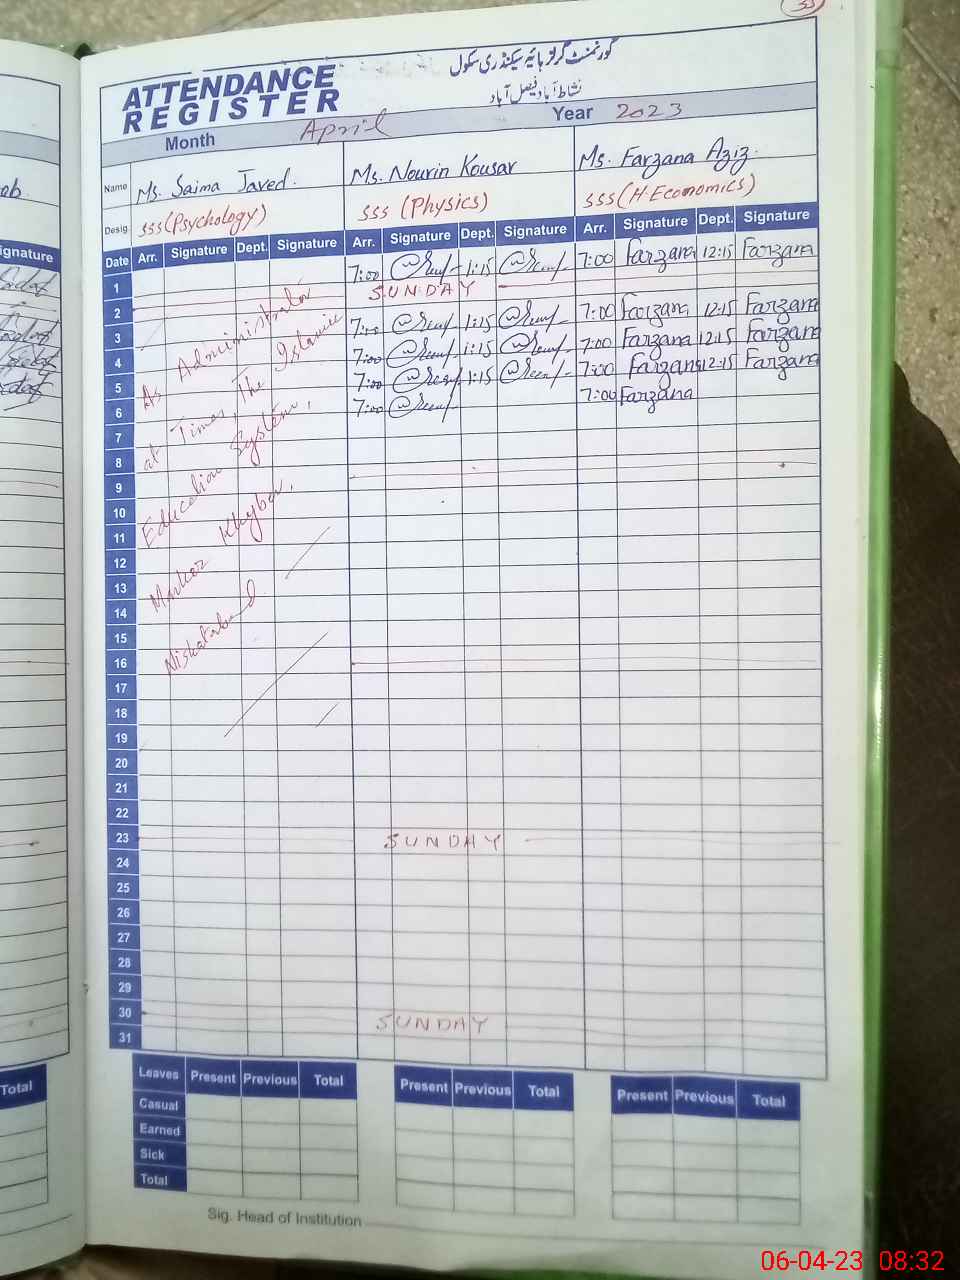 33
ATTENDANCE
REGISTER
گورنمنٹ گرلز ہائیر سیکنڈری سکول
نشاط آباد فیصل آباد
Month April Year 2023
Name Ms. Saima Javed. Ms. Nourin Kousar Ms. Farzana Aziz.
Desig. SSS (Psychology) SSS (Physics) SSS (H.Economics)
Date Arr. Signature Dept. Signature Arr. Signature Dept. Signature Arr. Signature Dept. Signature
1 7:00 1:15 7:00 Farzana 12:15 Farzana
2 SUNDAY
3 7:00 1:15 7:00 Farzana 12:15 Farzana
4 7:00 1:15 7:00 Farzana 12:15 Farzana
5 7:00 1:15 7:00 Farzana 12:15 Farzana
6 7:00 7:00 Farzana
As Administrator
at Times, The Islamic
Education System,
Markaz Khyber,
7
8
9
10
11
12
13
14
15
16
17
18
19
20
21
22
23 SUNDAY
24
25
26
27
28
29
30 SUNDAY
31
Leaves Present Previous Total Present Previous Total Present Previous Total
Casual
Earned
Sick
Total
Sig. Head of Institution
Signature
Total
06-04-23 08:32